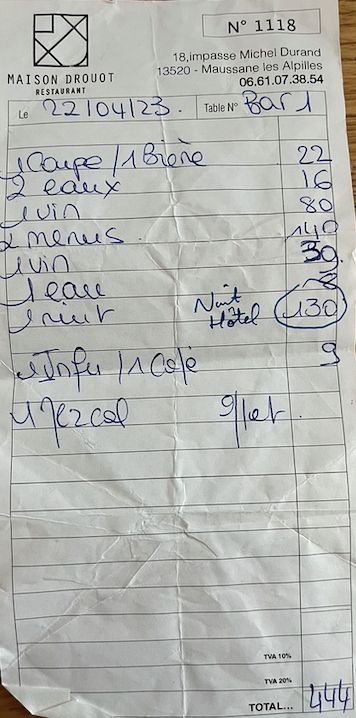 N° 1118
MAISON DROUOT
RESTAURANT
18,impasse Michel Durand
13520 - Maussane les Alpilles
06.61.07.38.54
Le 22/04/23. Table N° Bar 1
1 Coupe / 1 Bière 22
2 eaux 16
1 vin 80
2 menus. 140
1 vin 30.
1 eau 8
1 nuit Nuit Hôtel 130
1 Infu / 1 Café 9
1 Mezcal
TVA 10%
TVA 20%
TOTAL... 444